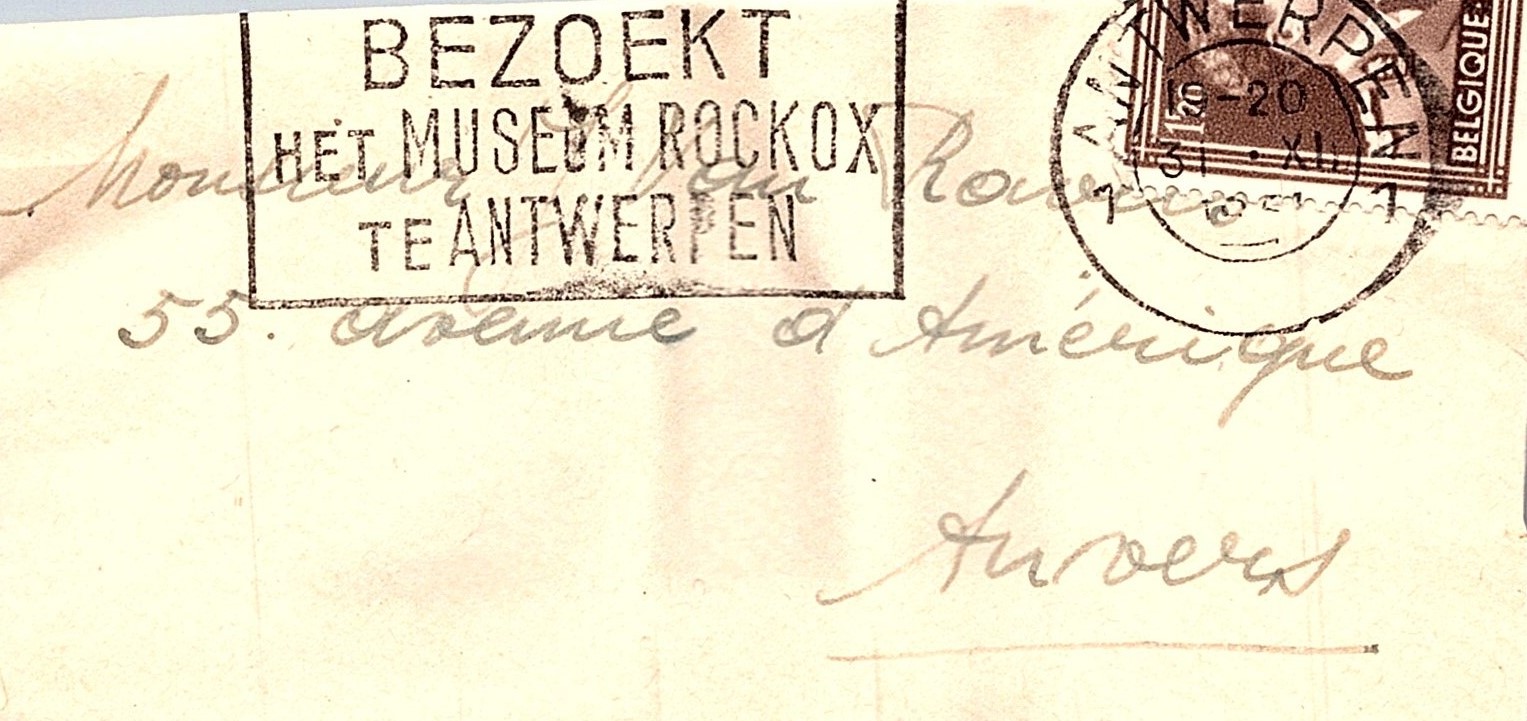 BEZOEKT
HET MUSEUM ROCKOX
TE ANTWERPEN
ANTWERPEN
-20
31 · XII
1 1
BELGIQUE
Monsieur Van
55. avenue d'Amérique
Anvers